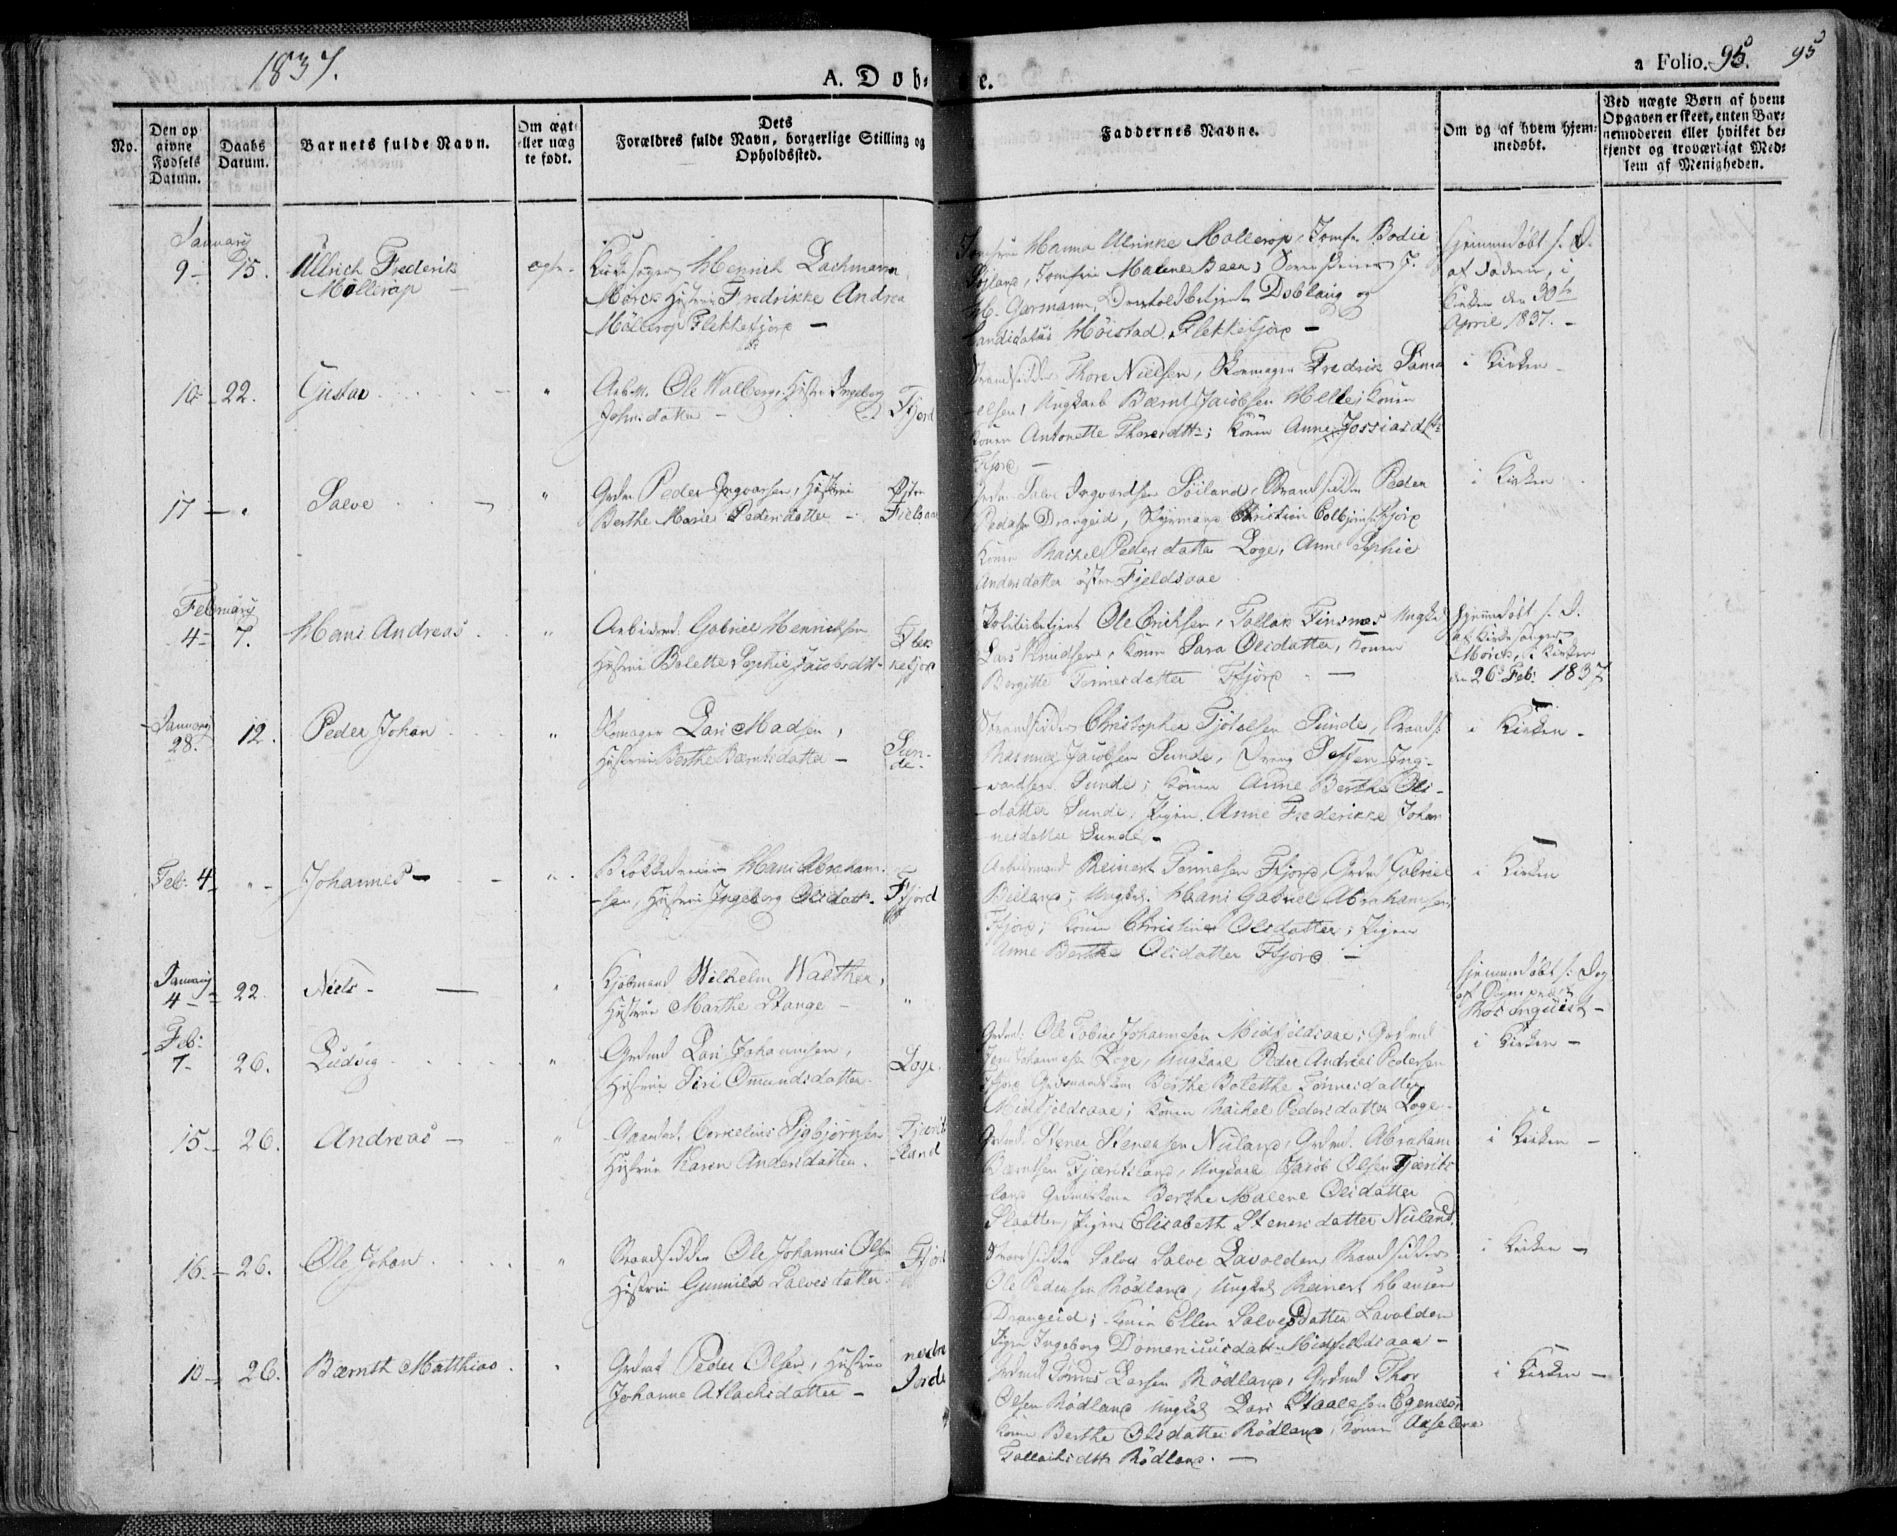 1837.
A. Døb=
e.
a Folio. 95.
95
No.
Den op
givne
Fødsels
Datum.
Daabs
Datum.
Barnets fulde Navn.
Om ægte
eller uæg
te født.
Dets
Forældres fulde Navn, borgerlige Stilling og
Opholdssted.
Faddernes Navne.
Om og af hvem hjem=
medøbt.
Ved uægte Børn af hvem
Opgaven er skeet, enten Bar=
nemoderen eller hvilket be=
kjendt og troværdigt Med=
lem af Menigheden.
January
9 - 15. Ullrich Frederik
Möllerop
ægte -
Kirkesanger Henrich Lachmann
Mørck Hustrue Fredrikke Andrea
Möllerop Flekkefjord -
Jomfru Hanna Ulrikke Mollerop, Jomfr. Bodil
Jomfru Malene Beer,
Garmann,
Candidatus Høistad, Flekkefjord -
Hjemmedøbt
af Faderen, i
Kirken den 30te
April 1837. -
10 - 22. Gustav
Ole Walberg, Hustr. Ingeborg
Johnsdatter -
Ffjord
Strandsidder Thore Nielsen, Skomager Fredrik Sam
Ungkarl Bærnt Jacobsen Helle; Konen
Konen Antonette Thoresdtt; Konen Anne Jossiasdtr
Ffjord -
i Kirken -
17 - " Salve
Grdm. Peder Ingvarsen, Hustrue
Berthe Marie Pedersdatter -
Østre
Fielsaa
Salve Ingvardsen Söiland, Strandsidder Peder
Drangeid, Styrmand Christian Colbjørns. Ffjord
Konen Rachel Pedersdatter Loge, Anne Sophie
Andersdatter østre Fjeldsaae
i Kirken
February
4 - 7. Hans Andreas
Arbeidsmd. Gabriel Henrichsen
Hustrue Bolette Sophie Jacobsdtt.
Flek
kefjord
Politiebetjent Ole Erichsen, Tollak Finsnæs, Ungk.
Lars Knudsen, Konen Sara Olsdatter, Konen
Bergitte Tønnesdatter Ffjord -
Hjemmedøbt
af Kirkesanger
Mörch, i Kirken
den 26 Feb: 1837
January
28. 12. Peder Johan
Skomager Lars Madsen,
Hustrue Berthe Bærntsdatter -
Sun-
de.
Strandsidder Christopher Sunde,
Rasmus Jacobsen Sunde, Dreng Ing-
-vardsen Sunde; Konen Anne Berthe Ols-
-datter Sunde, Pigen Anne Frederikke Johan
nesdatter Sunde. -
i Kirken -
Feb: 4 - " - Johannes -
Blokkedreier Hans Abraham-
-sen, Hustrue Ingeborg Olsdatt.
Ffjord
Arbeidsmand Reinert Tønnesen Ffjord, Grdmd Gabriel
Beiland; Ungkarl. Hans Gabriel Abrahamsen
Ffjord; Konen Christine Olsdatter; Pigen
Anne Berthe Olsdatter Ffjord -
i Kirken
January
4 - 22. Niels -
Kjøbmand Wilhelm Walther,
Hustrue Marthe Stange -
"
Hjemmedøbt
af
Rosenquist -
Feb:
7 - 26. Ludvig
Grdmd Lars Johannesen,
Hustrue Siri Omundsdatter.
Loge.
Grdmd. Ole Tobias Johannesen Midfjeldsaae; Grdmd
Johannesen Loge, Ungkarl Peder Andreas Pedersen
Ffjord Berthe Bolethe Tønnesdatter
Midfjeldsaae; Konen Rachel Pedersdatter Loge -
i Kirken -
15 - 26. Andreas -
Gaardmd. Cornelius Sigbjørnsen
Hustrue Karen Andersdatter.
Fjerits
land
Grdmd. Stener Stenersen Nuland, Grdmd. Abraham
Bærntsen Fjæritsland, Ungkarl Jacob Olsen Fjærits
land Berthe Malene Olsdatter
Slaatten, Pigen Elisabeth Stenersdatter Nuland.
i Kirken -
16. - 26. Ole Johan
Strandsidder Ole Johannes Olsen
Hustrue Gunnild Salvesdatter.
Ffjord
Strandsidder Salve Lavolden, Strandsidder
Ole Pedersen Rödland, Ungkarl Reinert Hansen
Drangeid; Konen Ellen Salvesdatter Lavolden
Pigen Ingeborg Midfjeldsaae -
i Kirken -
10 - 26. Bærnth Matthias.
Grdmd Peder Olsen, Hustrue
Johanne Atlachsdatter -
nedre
Grdmd Tønnes Larsen Rödland, Grdmd Thor
Olsen Rödland Ungkarl Lars Staalesen Egenæs,
Konen Berthe Olsdatter Rödland, Konen Axeliane
Tallachsdtt Rödland. -
i Kirken -